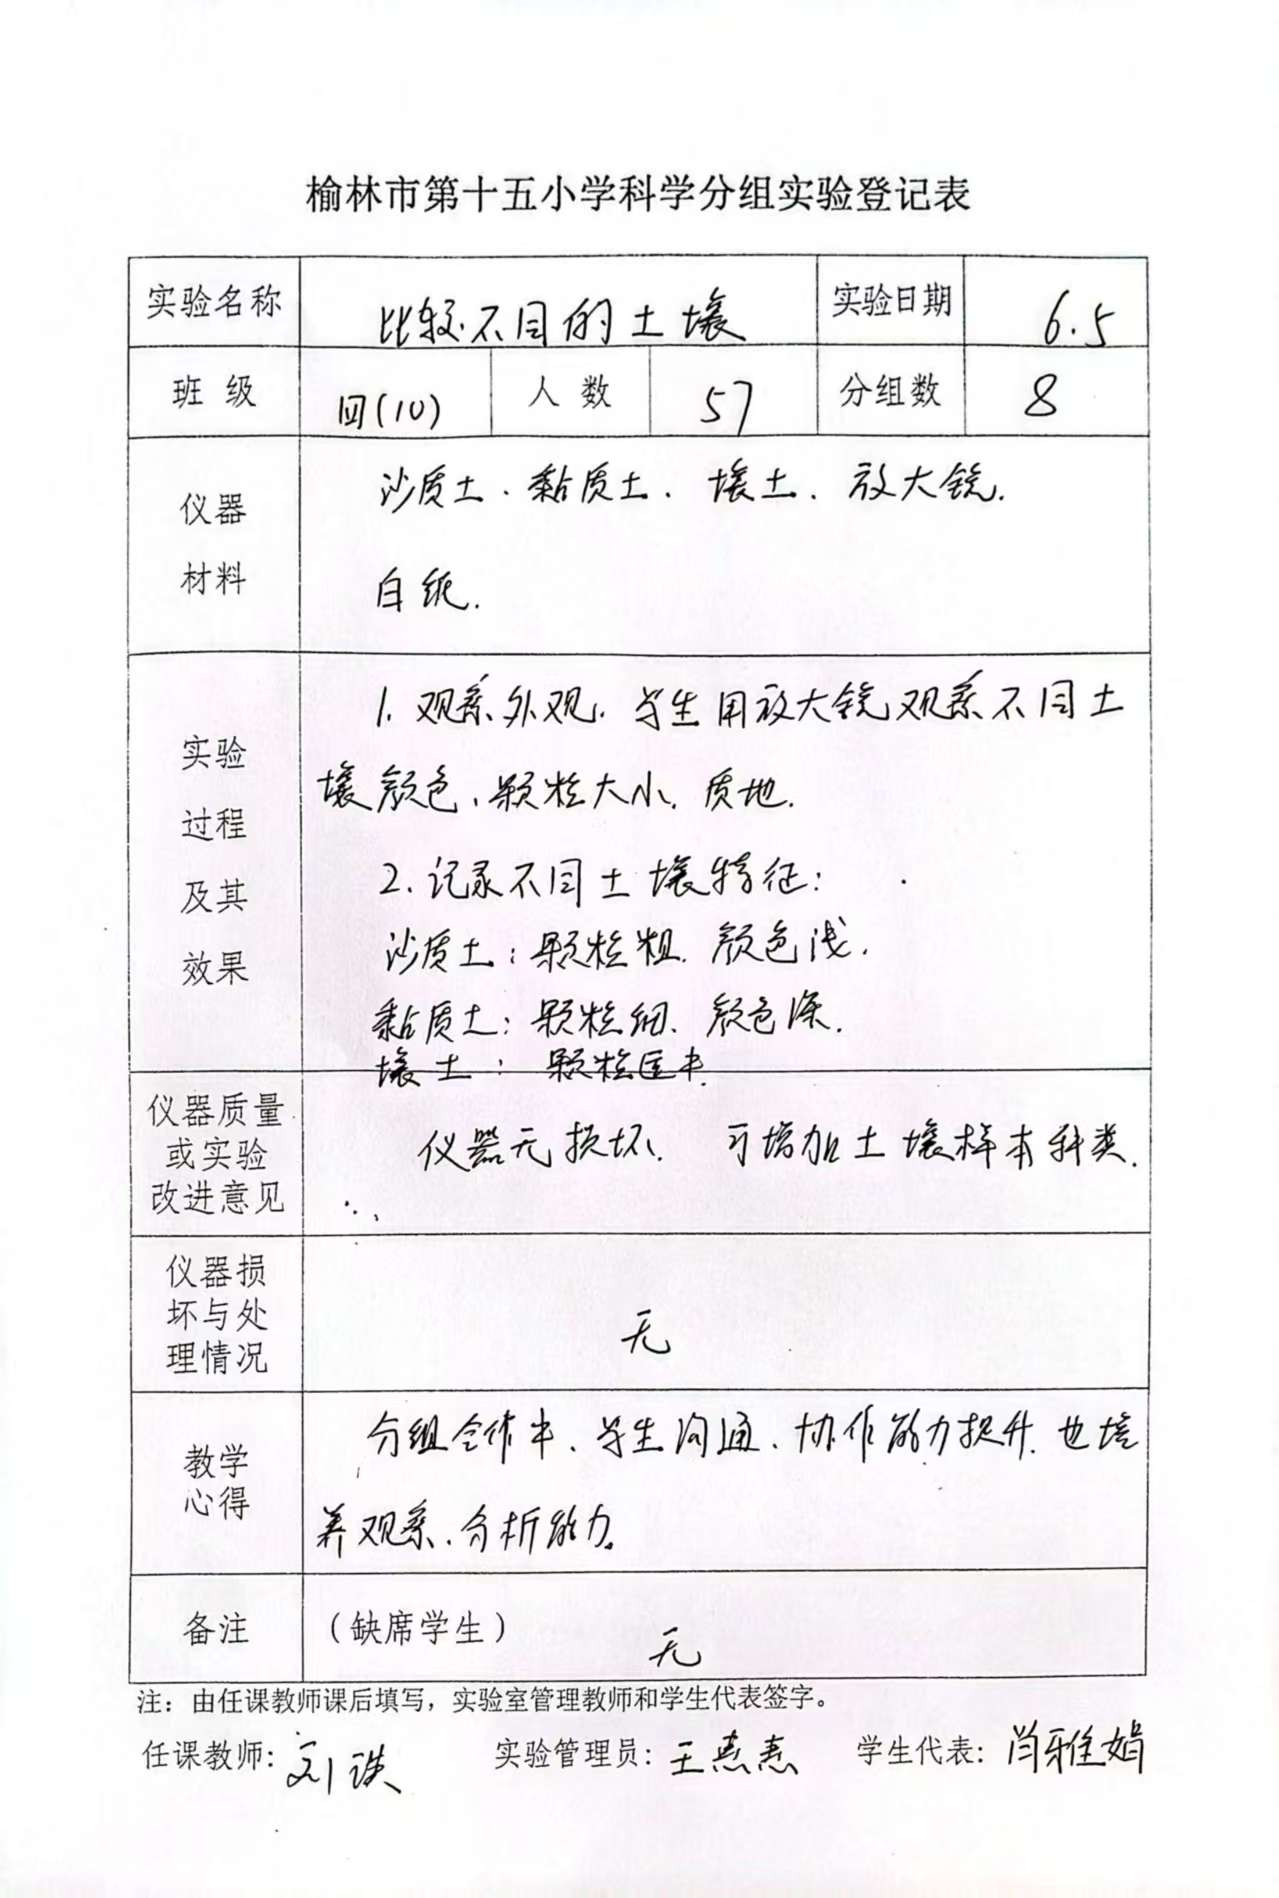 榆林市第十五小学科学分组实验登记表
实验名称 比较不同的土壤 实验日期 6.5
班级 四(10) 人数 57 分组数 8
仪器材料
沙质土、黏质土、壤土、放大镜.
白纸.
实验过程及其效果
1. 观察外观. 学生用放大镜观察不同土
壤颜色、颗粒大小、质地.
2. 记录不同土壤特征:
沙质土: 颗粒粗、颜色浅.
黏质土: 颗粒细、颜色深.
壤土: 颗粒适中.
仪器质量
或实验
改进意见
仪器无损坏. 可增加土壤样本种类.
仪器损
坏与处
理情况
无
教学
心得
分组合作中、学生沟通、协作能力提升. 也培
养观察、分析能力。
备注 (缺席学生) 无
注：由任课教师课后填写，实验室管理教师和学生代表签字。
任课教师: 刘 实验管理员: 王燕燕 学生代表: 雅娟